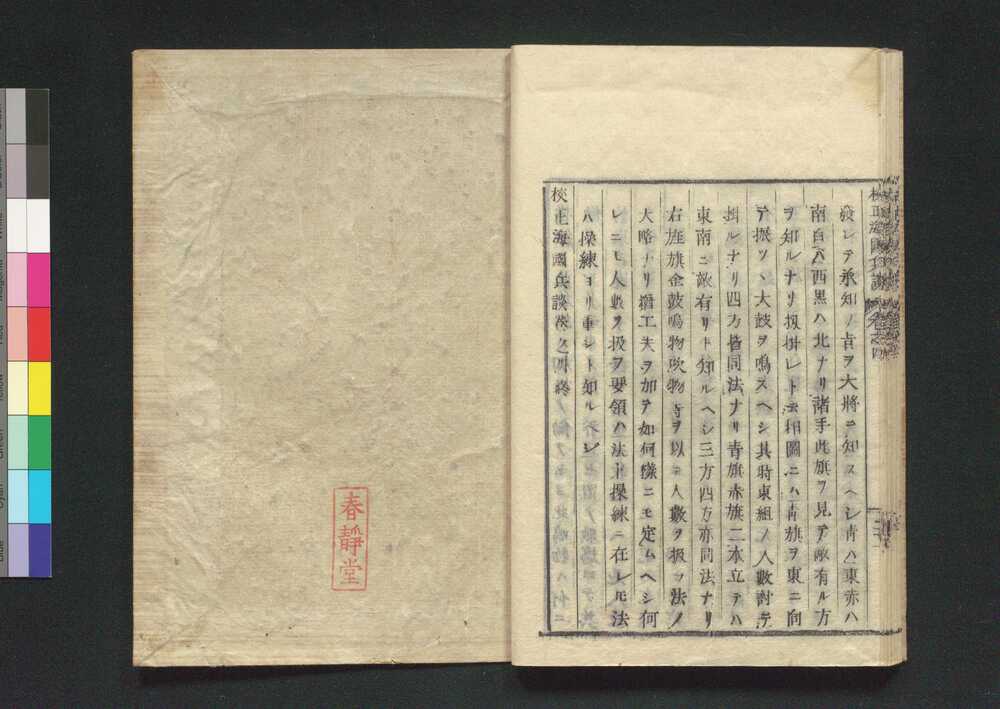 發シテ承知ノ旨ヲ大將ニ知スヘシ青ハ東赤ハ
南白ハ西黒ハ北ナリ諸手此旗ヲ見テ敵有ル方
ヲ知ルナリ扨掛レト云相圖ニハ青旗ヲ東ニ向
テ振ツヽ大鼓ヲ鳴スヘシ其時東組ノ人數討テ
掛ルナリ四方皆同法ナリ青旗赤旗二本立テハ
東南ニ敵有リト知ルヘシ三方四方亦同法ナリ
右旌旗金鼓鳴物吹物等ヲ以テ人數ヲ扱フ法ノ
大略ナリ猶工夫ヲ加テ如何樣ニモ定ムヘシ何
レニモ人數ヲ扱フ要領ハ法ト操練ニ在レモ法
ハ操練ヨリ重シト知ルヘシ
校正海國兵談卷之四終
春靜堂